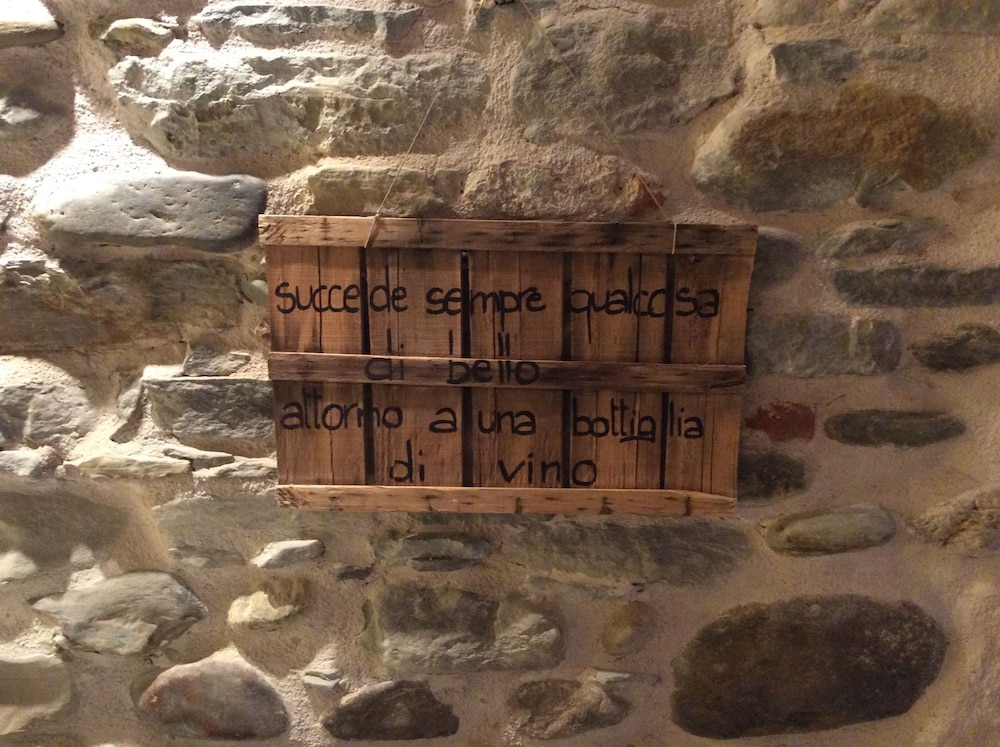 succede sempre qualcosa
di bello
attorno a una bottiglia
di vino